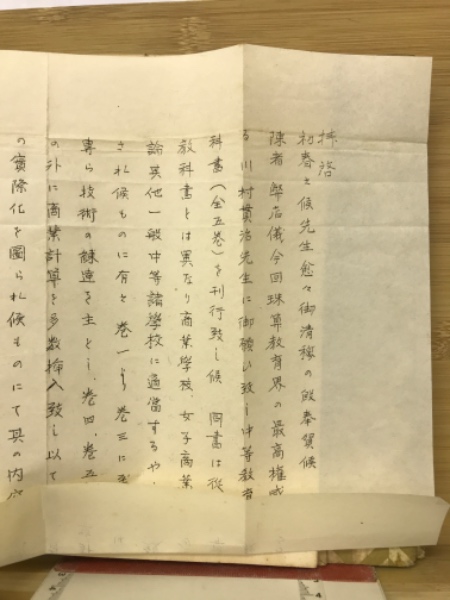 拝啓
初春之候先生愈々御清穆の段奉賀候
陳者弊店儀今回珠算教育界の最高権威
る川村貫治先生に御願い致し中等教育
科書(全五巻)を刊行致し候 同書は従
教科書とは異なり商業學校、女子商業
論其他一般中等諸學校に適當するや
され候ものに有之巻一より巻三に至
専ら技術の錬達を主とし、巻四、巻五
の外に商業計算を多数挿入致し以て
の實際化を圖られ候ものにて其の内容